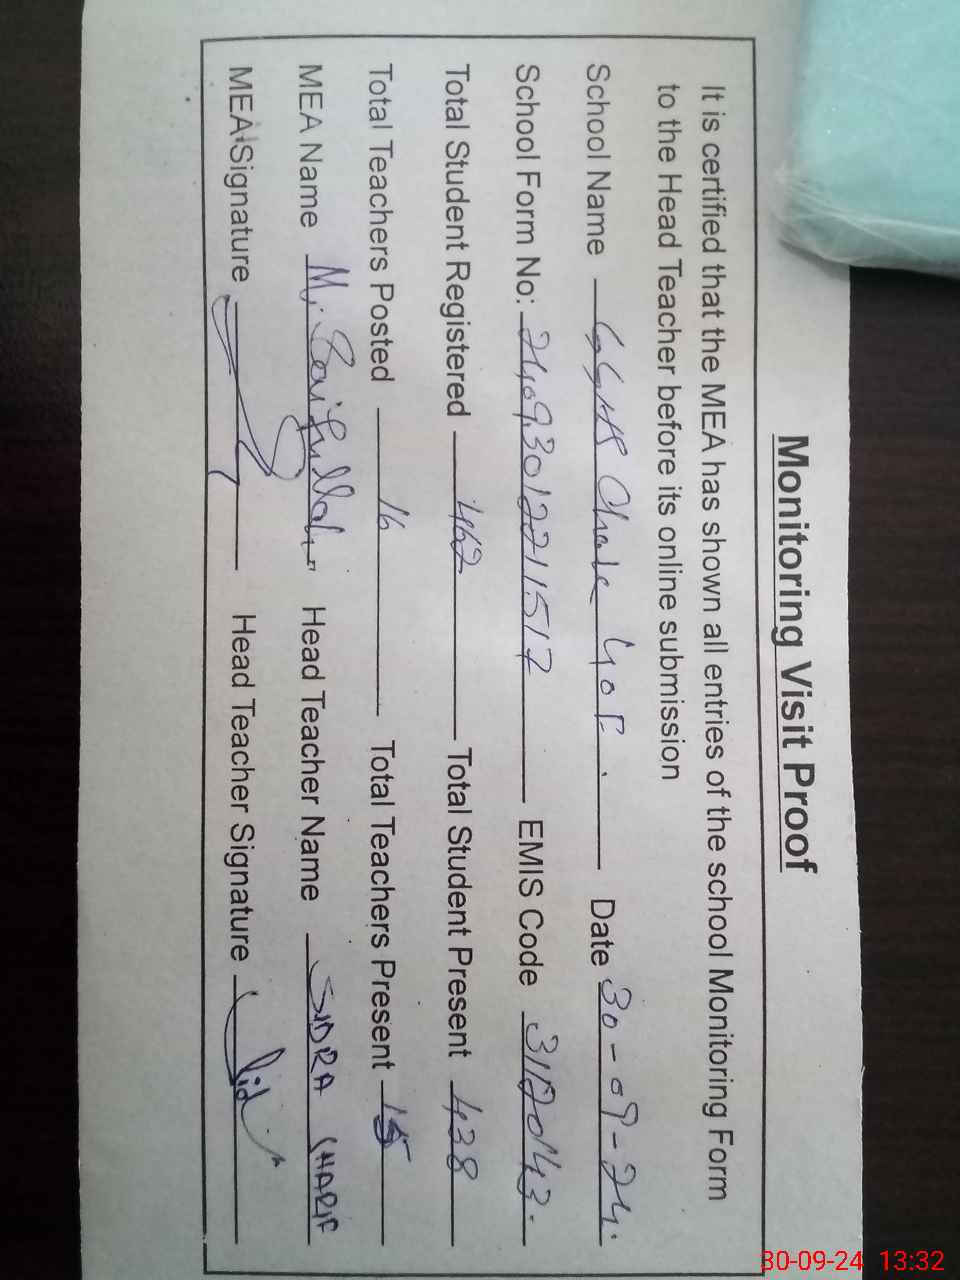 Monitoring Visit Proof
It is certified that the MEA has shown all entries of the school Monitoring Form
to the Head Teacher before its online submission
School Name GGHS Chak 40F. Date 30-09-24.
School Form No: 24093012211517 EMIS Code 31120143.
Total Student Registered 462 Total Student Present 438
Total Teachers Posted 16 Total Teachers Present 15
MEA Name M. Saifullah Head Teacher Name SIDRA
MEA Signature Head Teacher Signature
30-09-24 13:32